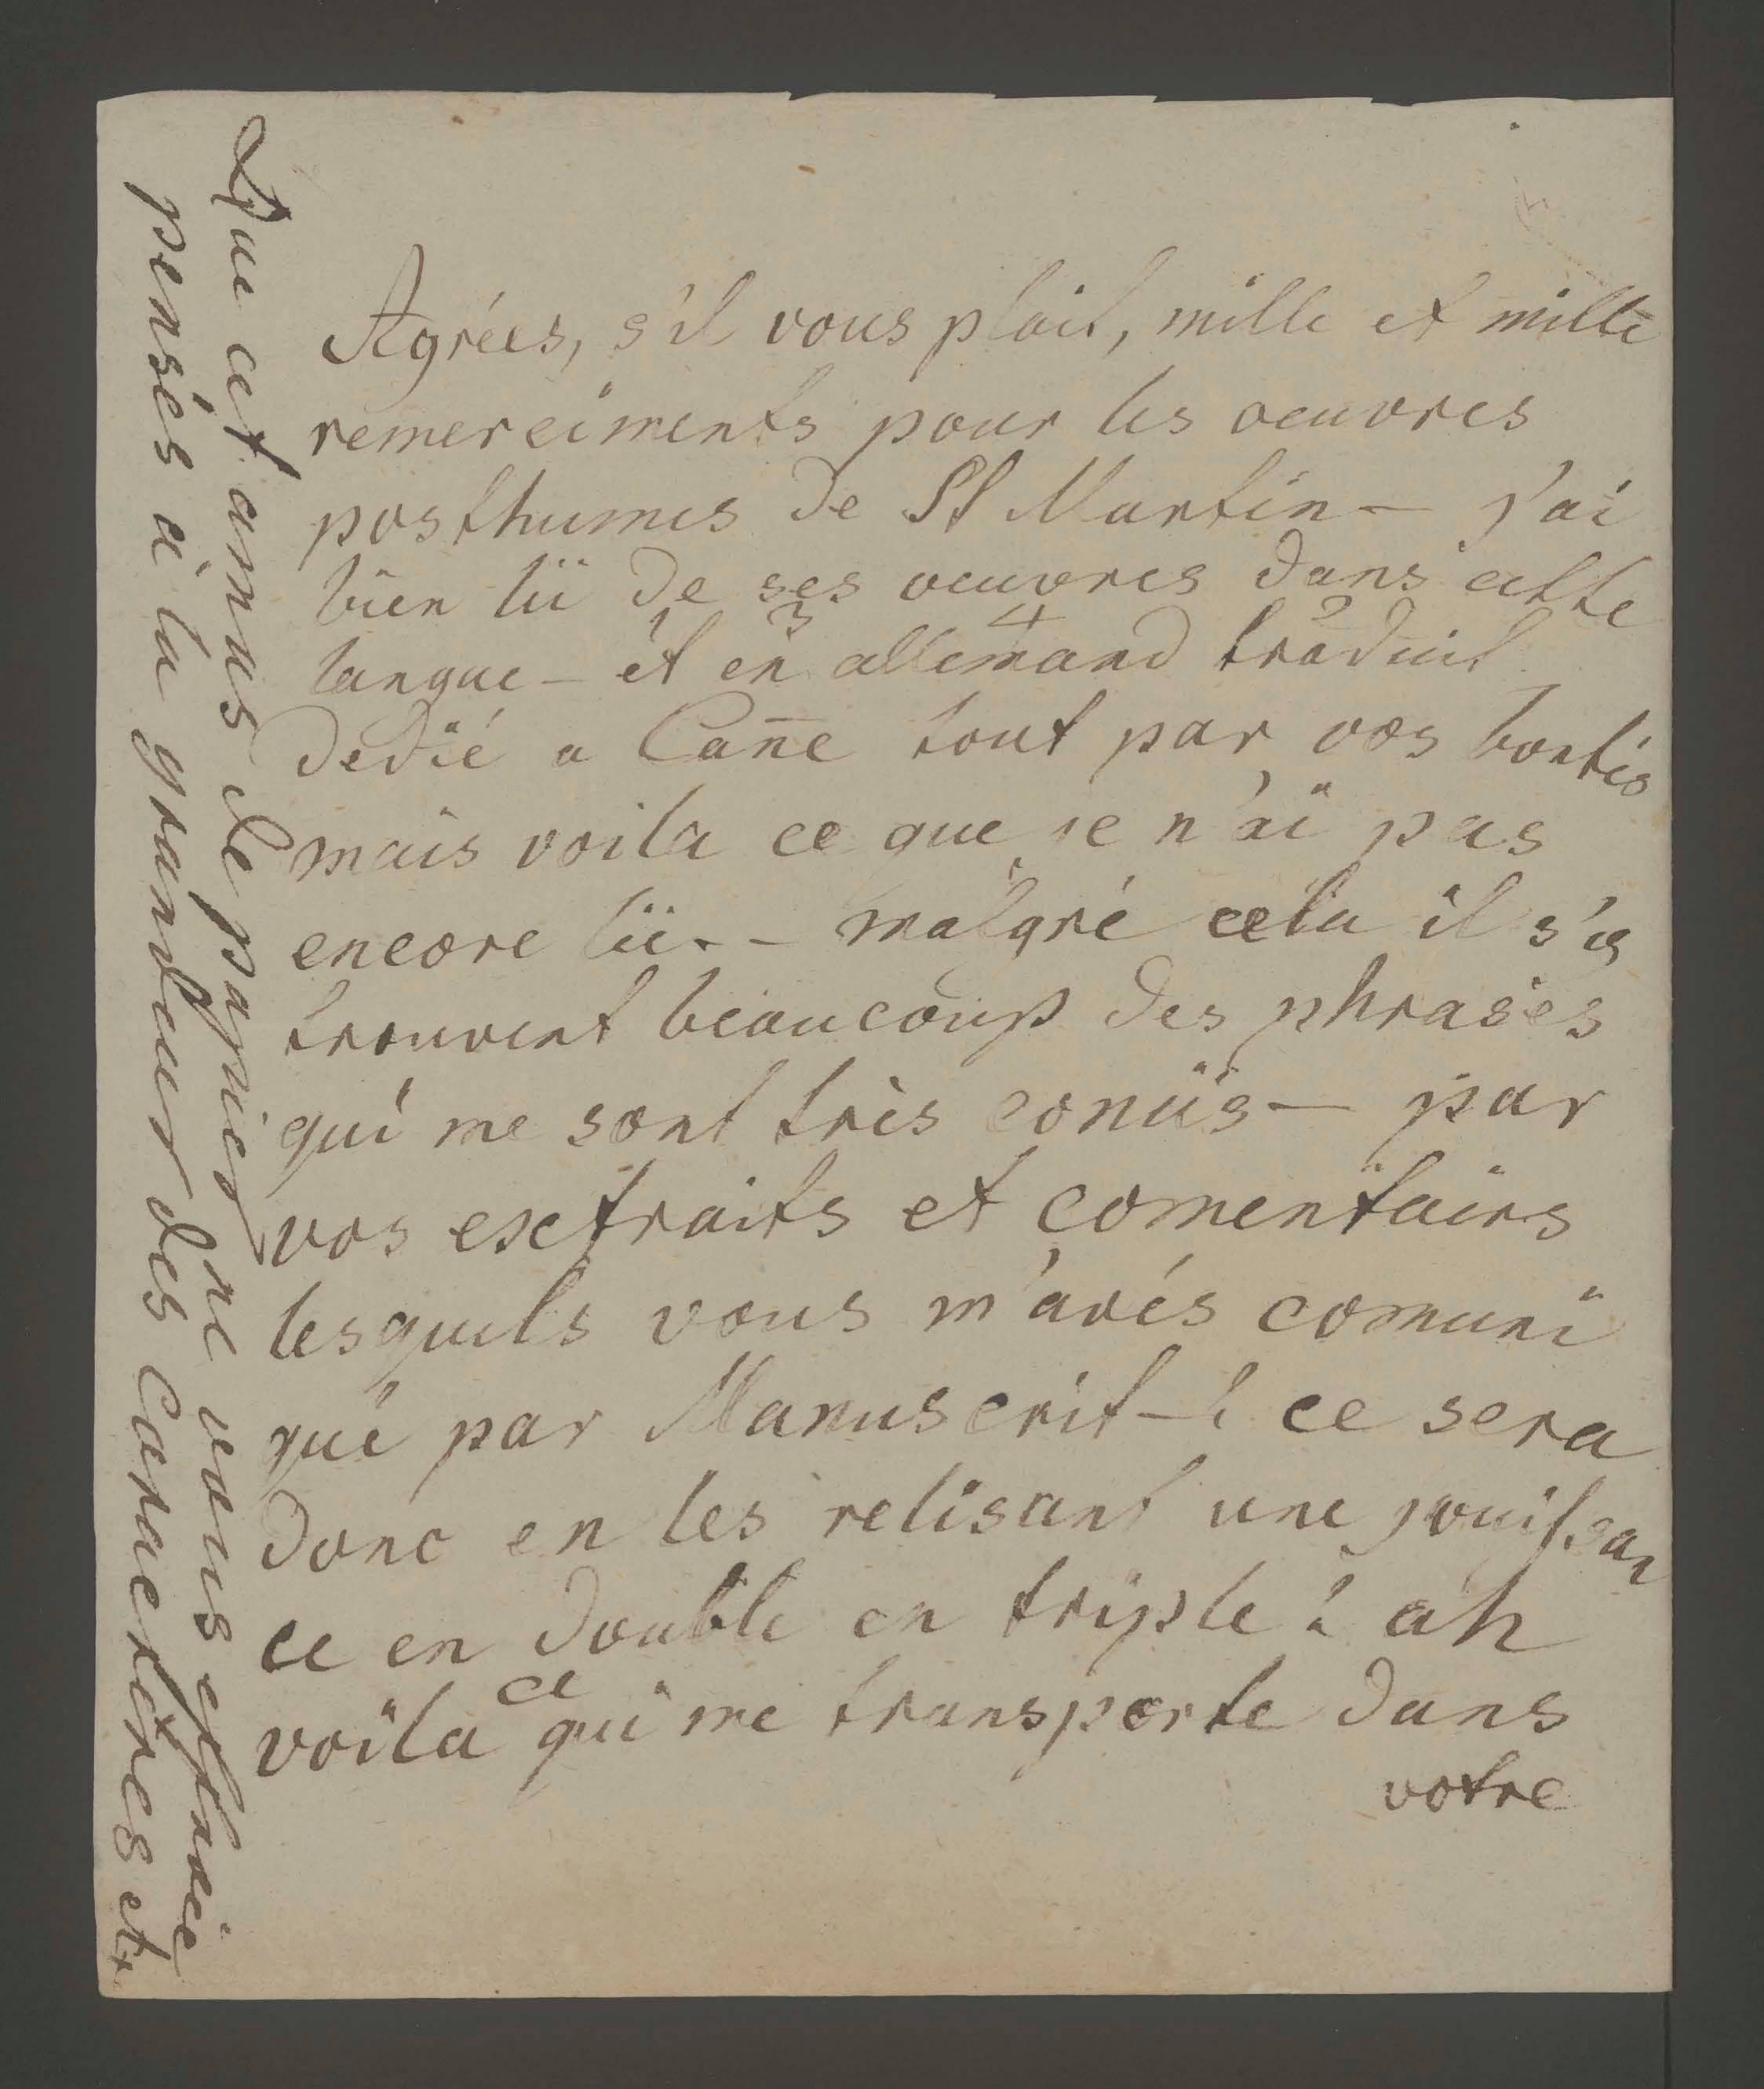 Agrées, s'il vous plait, mille et mille
remerciments pour les oeuvres
posthumes de St Martin — j'ai
bien lü de ses oeuvres dans cette
1 3 4 2
langue — et en allemand traduit
dedié a Cane tout par vos bontés
mais voila ce que je n'ai pas
encore lü. — malgré cela il s'y
trouvent beaucoup des phrases
qui me sont très conüs — par
vos extraits et comentairs
lesquels vous m'avés comuni
qué par Manuscrit — ! ce sera
donc en les relisant une jouissan
ce en double en triple ! ah
ce
voila qui me transporte dans
votre
Que cet amas de papier ne vous effraie
pensés à la grandeur des Caracteres et.